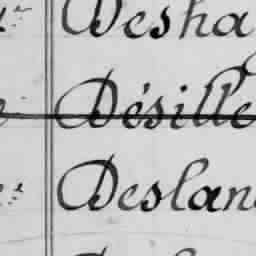 Desha
Désille
Deslan